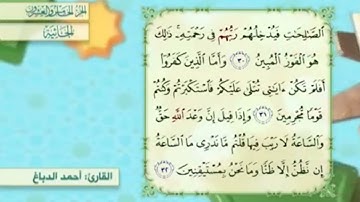 الجزء الخامس والعشرون
الجاثية
ٱلصَّـٰلِحَـٰتِ فَيُدْخِلُهُمْ رَبُّهُمْ فِى رَحْمَتِهِۦ ۚ ذَٰلِكَ
هُوَ ٱلْفَوْزُ ٱلْمُبِينُ ٣٠ وَأَمَّا ٱلَّذِينَ كَفَرُوٓا۟
أَفَلَمْ تَكُنْ ءَايَـٰتِى تُتْلَىٰ عَلَيْكُمْ فَٱسْتَكْبَرْتُمْ وَكُنتُمْ
قَوْمًا مُّجْرِمِينَ ٣١ وَإِذَا قِيلَ إِنَّ وَعْدَ ٱللَّهِ حَقٌّ
وَٱلسَّاعَةُ لَا رَيْبَ فِيهَا قُلْتُم مَّا نَدْرِى مَا ٱلسَّاعَةُ
إِن نَّظُنُّ إِلَّا ظَنًّا وَمَا نَحْنُ بِمُسْتَيْقِنِينَ ٣٢
القارئ: أحمد الدباغ